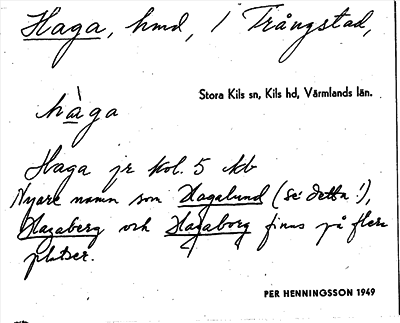 Haga, hmd, i Trångstad,
Stora Kils sn, Kils hd, Värmlands län.
hàga
Haga jr kol. 5 kb
Nyare namn som Hagalund (se detta!),
Hagaberg och Hagaborg finns på flera
platser.
PER HENNINGSSON 1949